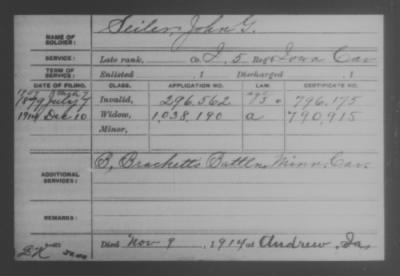 NAME OF SOLDIER: Seiler, John G.
SERVICE: Late rank, Co. I, 5 Reg't Iowa Cav
TERM OF SERVICE: Enlisted , 1 Discharged , 1
DATE OF FILING. CLASS. APPLICATION NO. LAW. CERTIFICATE NO.
1879 July 7 Invalid, 296.562 796,175
1914 Dec 10 Widow, 1,038,190 a 790,915
Minor,
ADDITIONAL SERVICES: B, Bracketts Battln. Minn. Cav.
REMARKS:
Died Nov 9, 1914 at Andrew, Ia